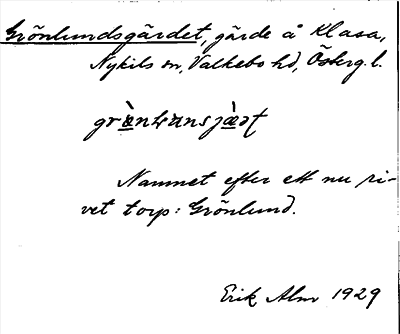 Grönlundsgärdet, gärde å Klasa,
Nykils sn, Valkebo hd, Österg. l.
Namnet efter ett nu ri-
vet torp: Grönlund.
Erik Alm 1929